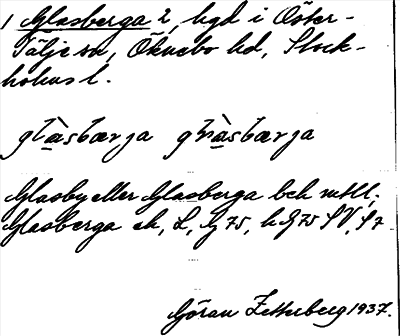 1 Glasberga 2, hgd i Öster-
Tälje sn, Öknebo hd, Stock-
holms l.
glàsbærja gɷàsbærja
Glasby eller Glasberga beh mtll;
Glasberga ek, L, G 75, h G 75 SV, S 7
Göran Zetterberg 1937.